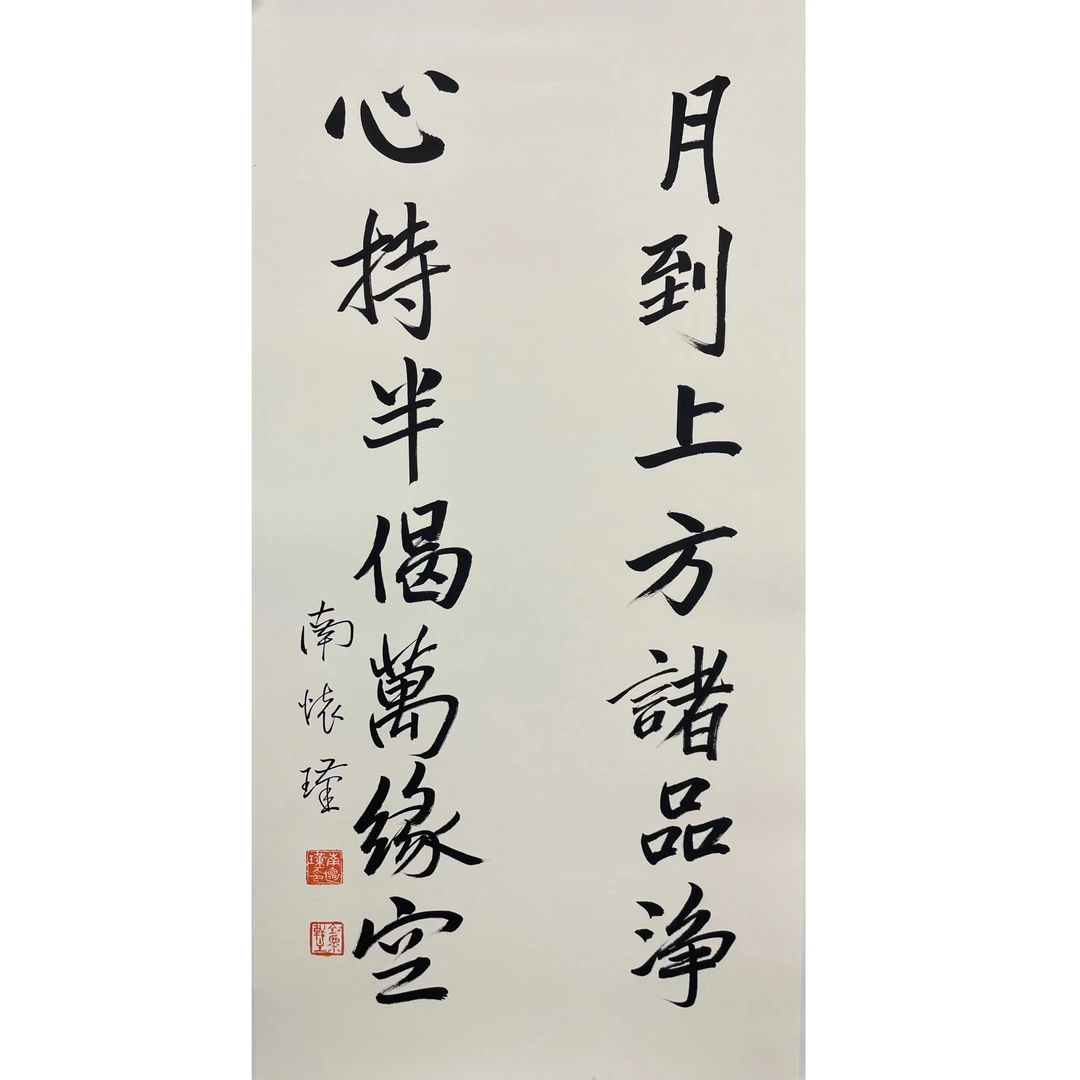 月到上方諸品浄
心持半偈萬緣空
南懷瑾